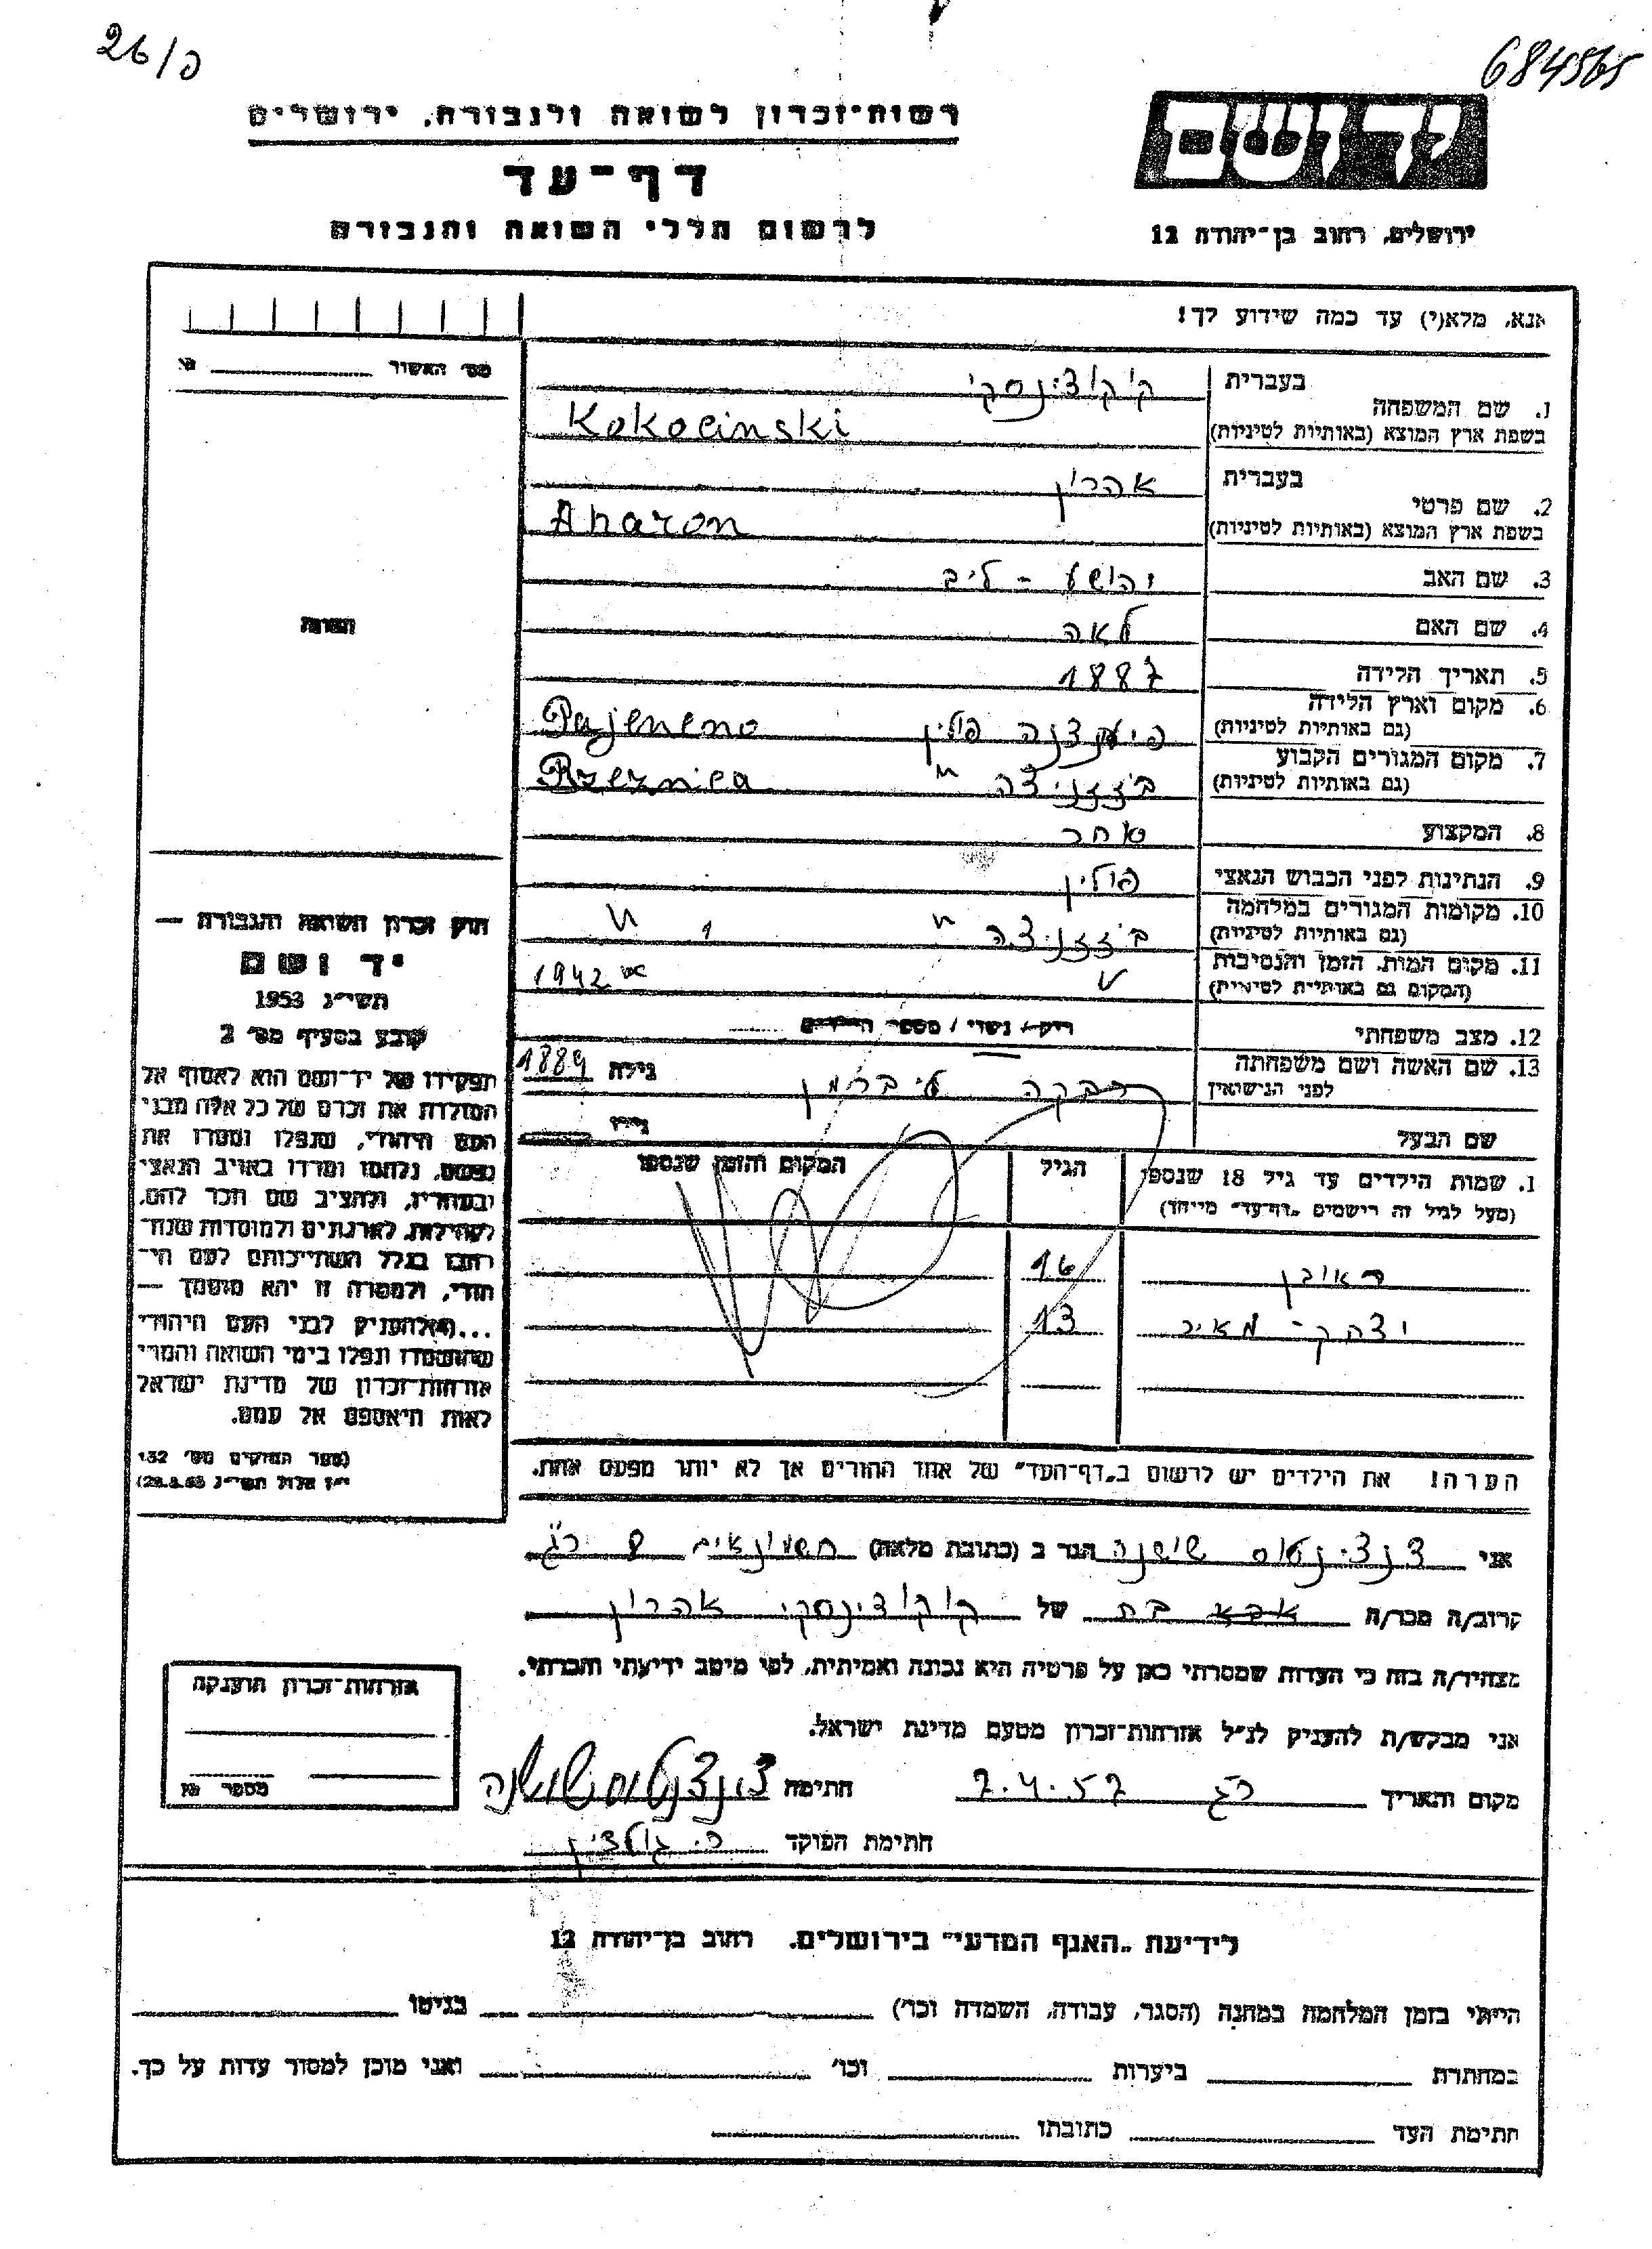 26/פ
684565
יד ושם
רשות-זכרון לשואה ולגבורה, ירושלים
דף-עד
לרשום חללי השואה והגבורה
ירושלים, רחוב בן-יהודה 12
אנא, מלא(י) עד כמה שידוע לך!
מס' האשור
בעברית קוקוצינסקי
1. שם המשפחה
בשפת ארץ המוצא (באותיות לטיניות) Kokocinski
בעברית אהרון
2. שם פרטי
בשפת ארץ המוצא (באותיות לטיניות) Aharon
3. שם האב יהושע - ליב
4. שם האם לאה
5. תאריך הלידה 1887
6. מקום וארץ הלידה פולין Pajeneno
(גם באותיות לטיניות)
7. מקום המגורים הקבוע בז'זניצה " Brzeznica
(גם באותיות לטיניות)
8. המקצוע סוחר
9. הנתינות לפני הכבוש הנאצי פולין
10. מקומות המגורים במלחמה בז'זניצה "
(גם באותיות לטיניות)
11. מקום המות, הזמן והנסיבות 1942
(המקום גם באותיות לטיניות)
12. מצב משפחתי רווק / נשוי / מספר הילדים
13. שם האשה ושם משפחתה רבקה ליברמן גילה 1889
לפני הנישואין
שם הבעל גילו
1. שמות הילדים עד גיל 18 שנספו הגיל המקום והזמן שנספו
(מעל לגיל זה רישמים "דף-עד" מיוחד)
ראובן 16
יצחק - מאיר 13
הערה! את הילדים יש לרשום ב"דף-העד" של אחד ההורים אך לא יותר מפעם אחת.
חוק זכרון השואה והגבורה —
יד ושם
תשי"ג 1953
קובע בסעיף מס' 2
תפקידו של יד-ושם הוא לאסוף אל
המולדת את זכרם של כל אלה מבני
העם היהודי, שנפלו ומסרו את
נפשם, נלחמו ומרדו באויב הנאצי
ובעוזריו, ולהציב שם וזכר להם,
לקהילות, לארגונים ולמוסדות שנח-
רבו בגלל השתייכותם לעם הי-
הודי, ולמטרה זו יהא מוסמך —
...(4) להעניק לבני העם היהודי
שהושמדו ונפלו בימי השואה והמרי
אזרחות-זכרון של מדינת ישראל
לאות היאספם אל עמם.
(ספר החוקים מס' 132
י"ז אלול תשי"ג 28.8.53)
אני שושנה הגר ב (כתובת מלאה) חשמונאים 8 ר"ג
קרוב/ה מכר/ה בת של קוקוצינסקי אהרון
מצהיר/ה בזה כי העדות שמסרתי כאן על פרטיה היא נכונה ואמיתית, לפי מיטב ידיעתי והכרתי.
אני מבקש/ת להעניק לנ"ל אזרחות-זכרון מטעם מדינת ישראל.
מקום ותאריך ר"ג 7.4.57 חתימה שושנה
חתימת הפוקד
אזרחות-זכרון הוענקה
מספר
לידיעת "האגף המדעי" בירושלים, רחוב בן-יהודה 12
הייתי בזמן המלחמה במחנה (הסגר, עבודה, השמדה וכו') בגיטו
במחתרת ביערות וכו' ואני מוכן למסור עדות על כך.
חתימת העד כתובתו